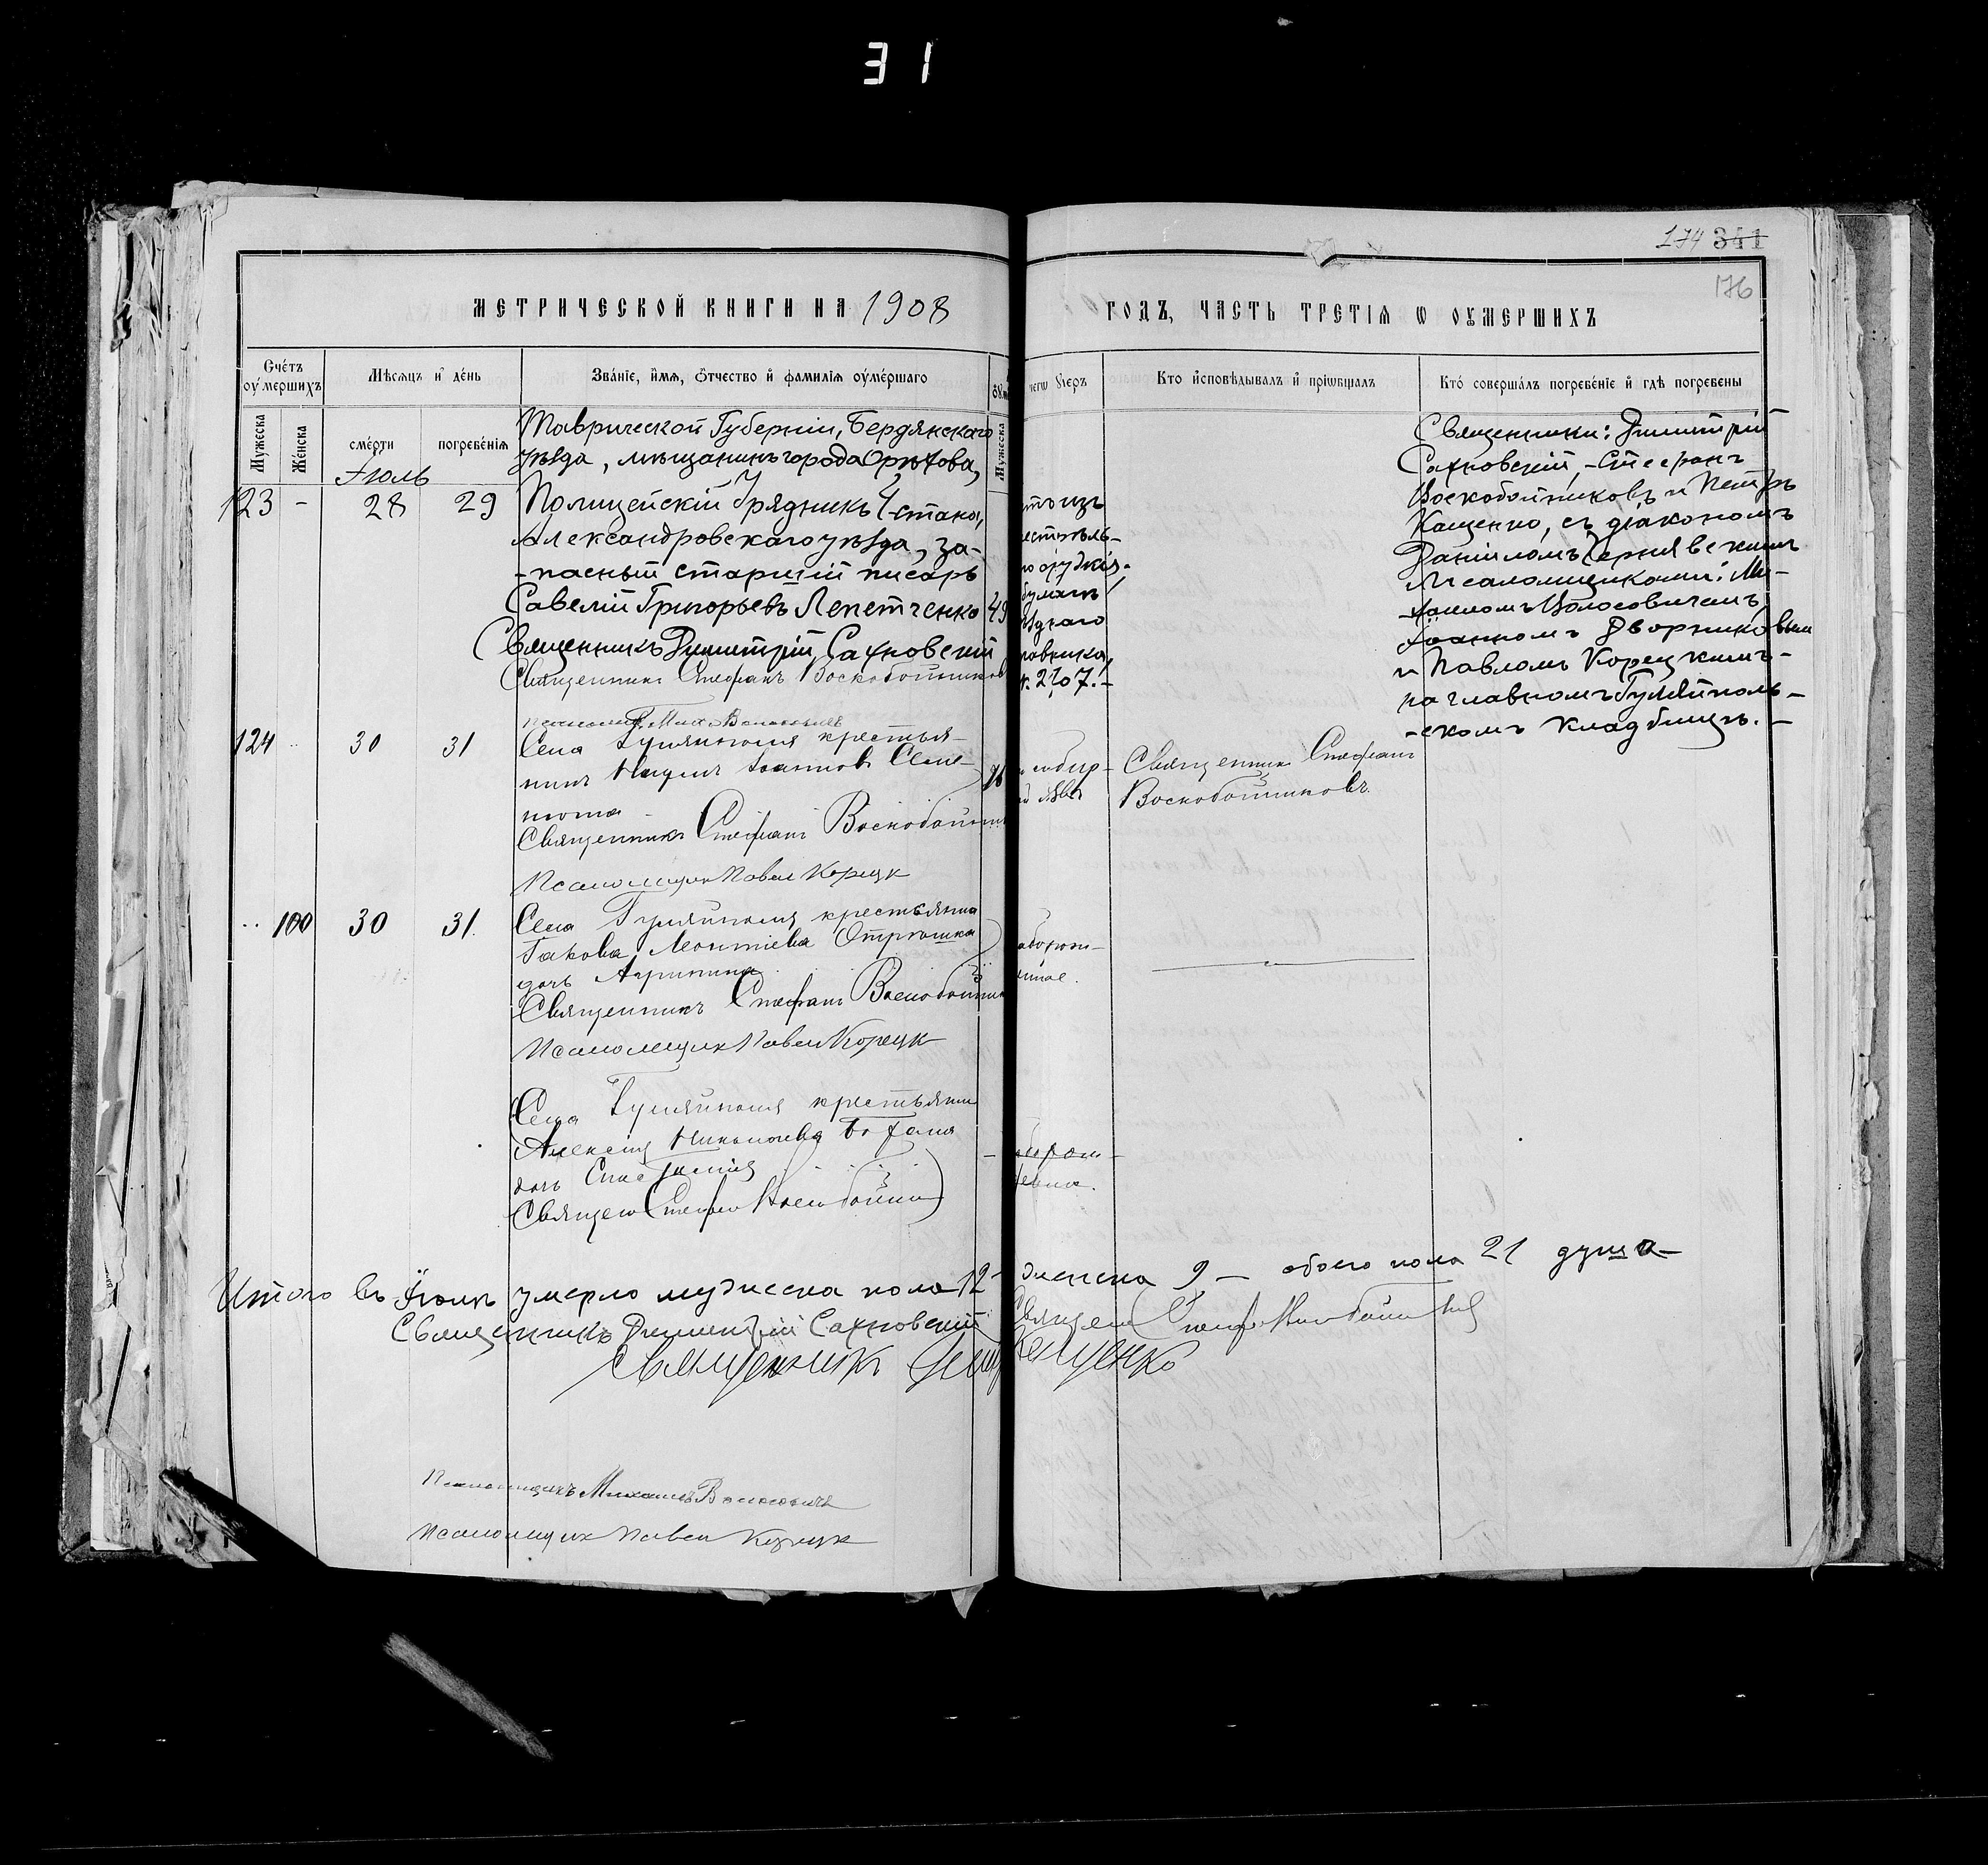 31
174 341
176
МЕТРИЧЕСКОЙ КНИГИ НА 1908
ГОДЪ, ЧАСТЬ ТРЕТІѦ Ѡ ОУМЕРШИХЪ
Счéтъ оу҆мéршихъ
Мѣсѧцъ и҆ дéнь
Звáніе, и҆́мѧ, ѻ҆́тчество и҆ фамилїѧ оу҆мéршагѡ
Мужеска
Жéнска
смéрти
погребéнїѧ
Мужеска
чегѡ у҆́меръ
Кто и҆сповѣдывалъ и҆ прїѡбщалъ
Ктó совершáлъ погребéнїе и҆ гдѣ погребены
Іюль
Таврической Губерніи, Бердянскаго
уѣзда, мѣщанинъ города Орѣхова,
123 - 28 29 Полицейскій Урядникъ 4 стана,
Александровскаго уѣзда, за-
-пасный старшій писарь
Савелій Григорьевъ Лепетченко 49
Священникъ Димитрій Сахновскій
Священникъ Стефанъ Воскобойников
то изъ
бумагѣ
№ 2107.-
Священники: Димитрій
Сахновскій, -Стефанъ
Воскобойниковъ и Петръ
Кащенко, съ діакономъ
Даніиломъ Чернявскимъ
Псаломщиками: Ми-
-хаиломъ Волосовичемъ,
Іоанномъ Дворниковым
и Павломъ Корецкимъ-
на главномъ Гуляйполь-
-скомъ кладбищѣ.-
Псаломщ. Мих. Волосовичъ
124 30 31 Села Гуляйполя крестья-
нинъ Іоанновъ Семе-
нюта
Священникъ Стефанъ Воскобойни
Псаломщикъ Павел Корецк
Священникъ Стефанъ
Воскобойниковъ.
100 30 31. Села Гуляйполя крестьянина
Іакова Леонтіева
дочь Агрипина
Священникъ Стефанъ Воскобойник
Псаломщикъ Павел Корецк
Села Гуляйполя крестьянина
Алексія Николаева
дочь
Священ Стефан Воскобойник
Итого въ Іюлѣ умерло мужеска пола 12 - женска 9 - обоего пола 21 душа
Священникъ Димитрій Сахновскій
Священ Стеф Воскобойников
Священникъ Петр Кащенко
Псаломщикъ Михаилъ Волосовичъ
Псаломщик Павел Корецк